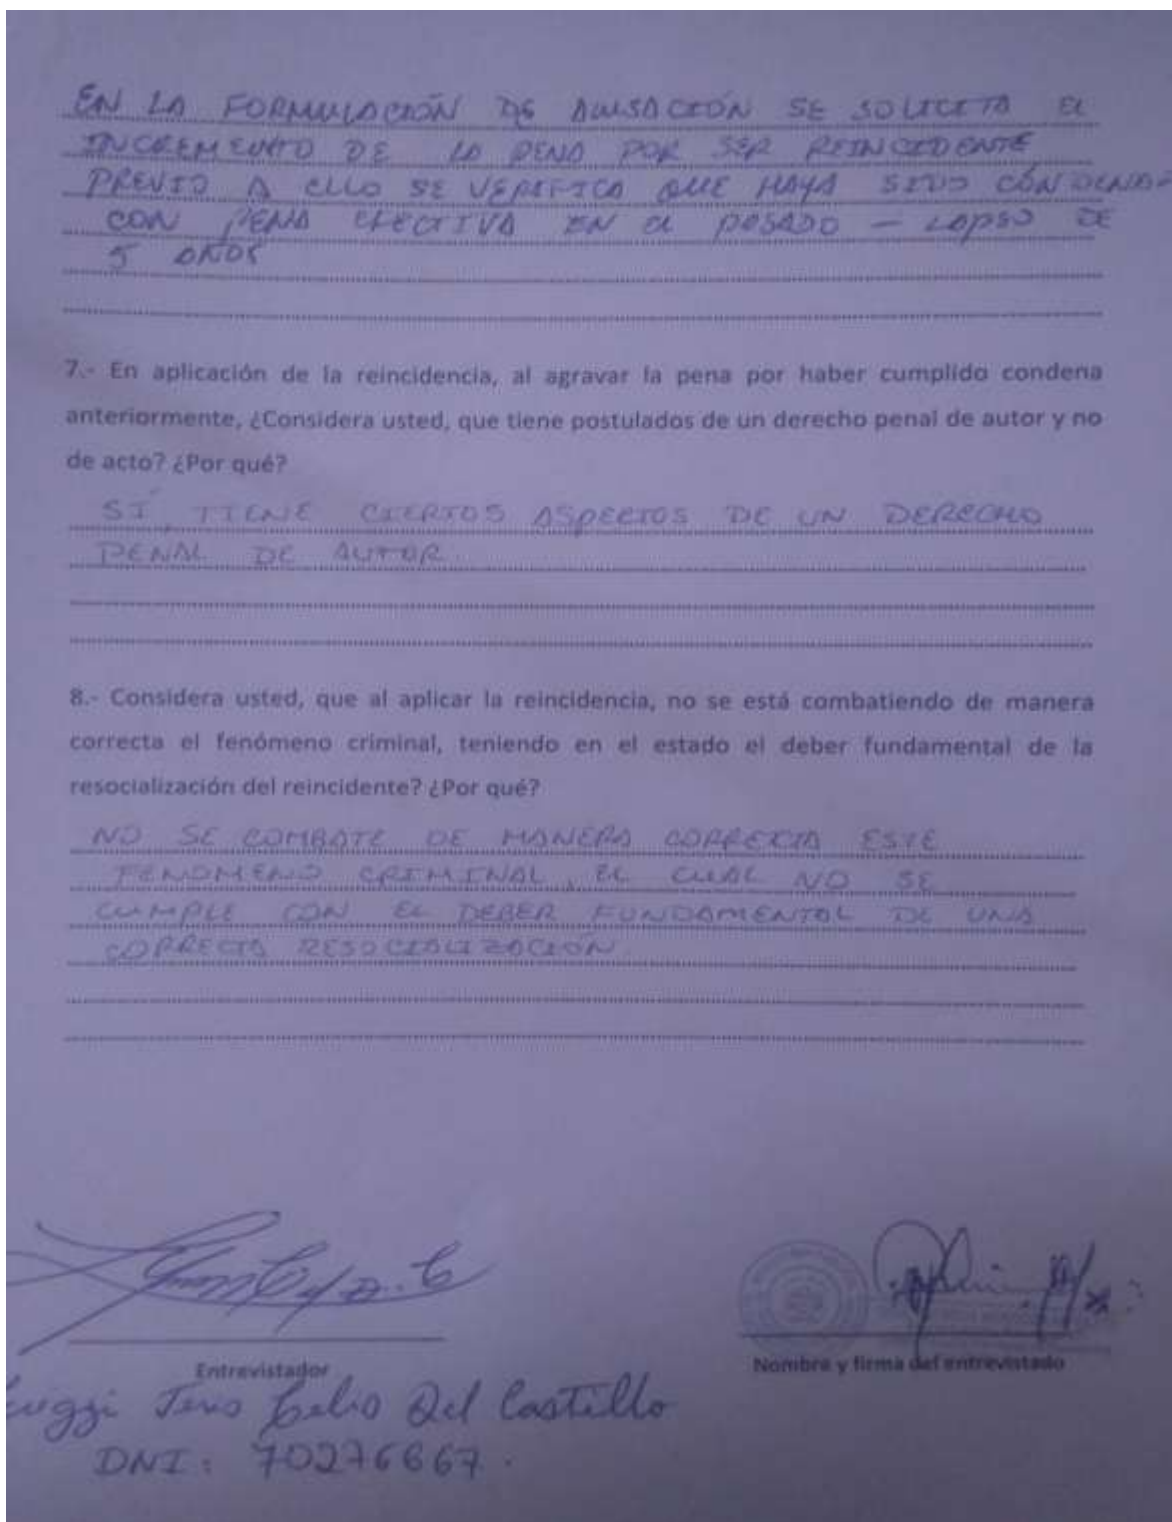 EN LA FORMULACIÓN DE AUSACIÓN SE SOLICITA EL
INCREMENTO DE LA PENA POR SER REINCIDENTE
PREVIO A ELLO SE VERIFICA QUE HAYA SIDO CONDENAD
CON PENA EFECTIVA EN EL PASADO – LAPSO DE
5 AÑOS
7.- En aplicación de la reincidencia, al agravar la pena por haber cumplido condena
anteriormente, ¿Considera usted, que tiene postulados de un derecho penal de autor y no
de acto? ¿Por qué?
SÍ, TIENE CIERTOS ASPECTOS DE UN DERECHO
PENAL DE AUTOR
8.- Considera usted, que al aplicar la reincidencia, no se está combatiendo de manera
correcta el fenómeno criminal, teniendo en el estado el deber fundamental de la
resocialización del reincidente? ¿Por qué?
NO SE COMBATE DE MANERA CORRECTA ESTE
FENOMENO CRIMINAL, EL CUAL NO SE
CUMPLE CON EL DEBER FUNDAMENTAL DE UNA
CORRECTA RESOCIALIZACIÓN.
Entrevistador
Nombre y firma del entrevistado
Del Castillo
DNI: 70276667.